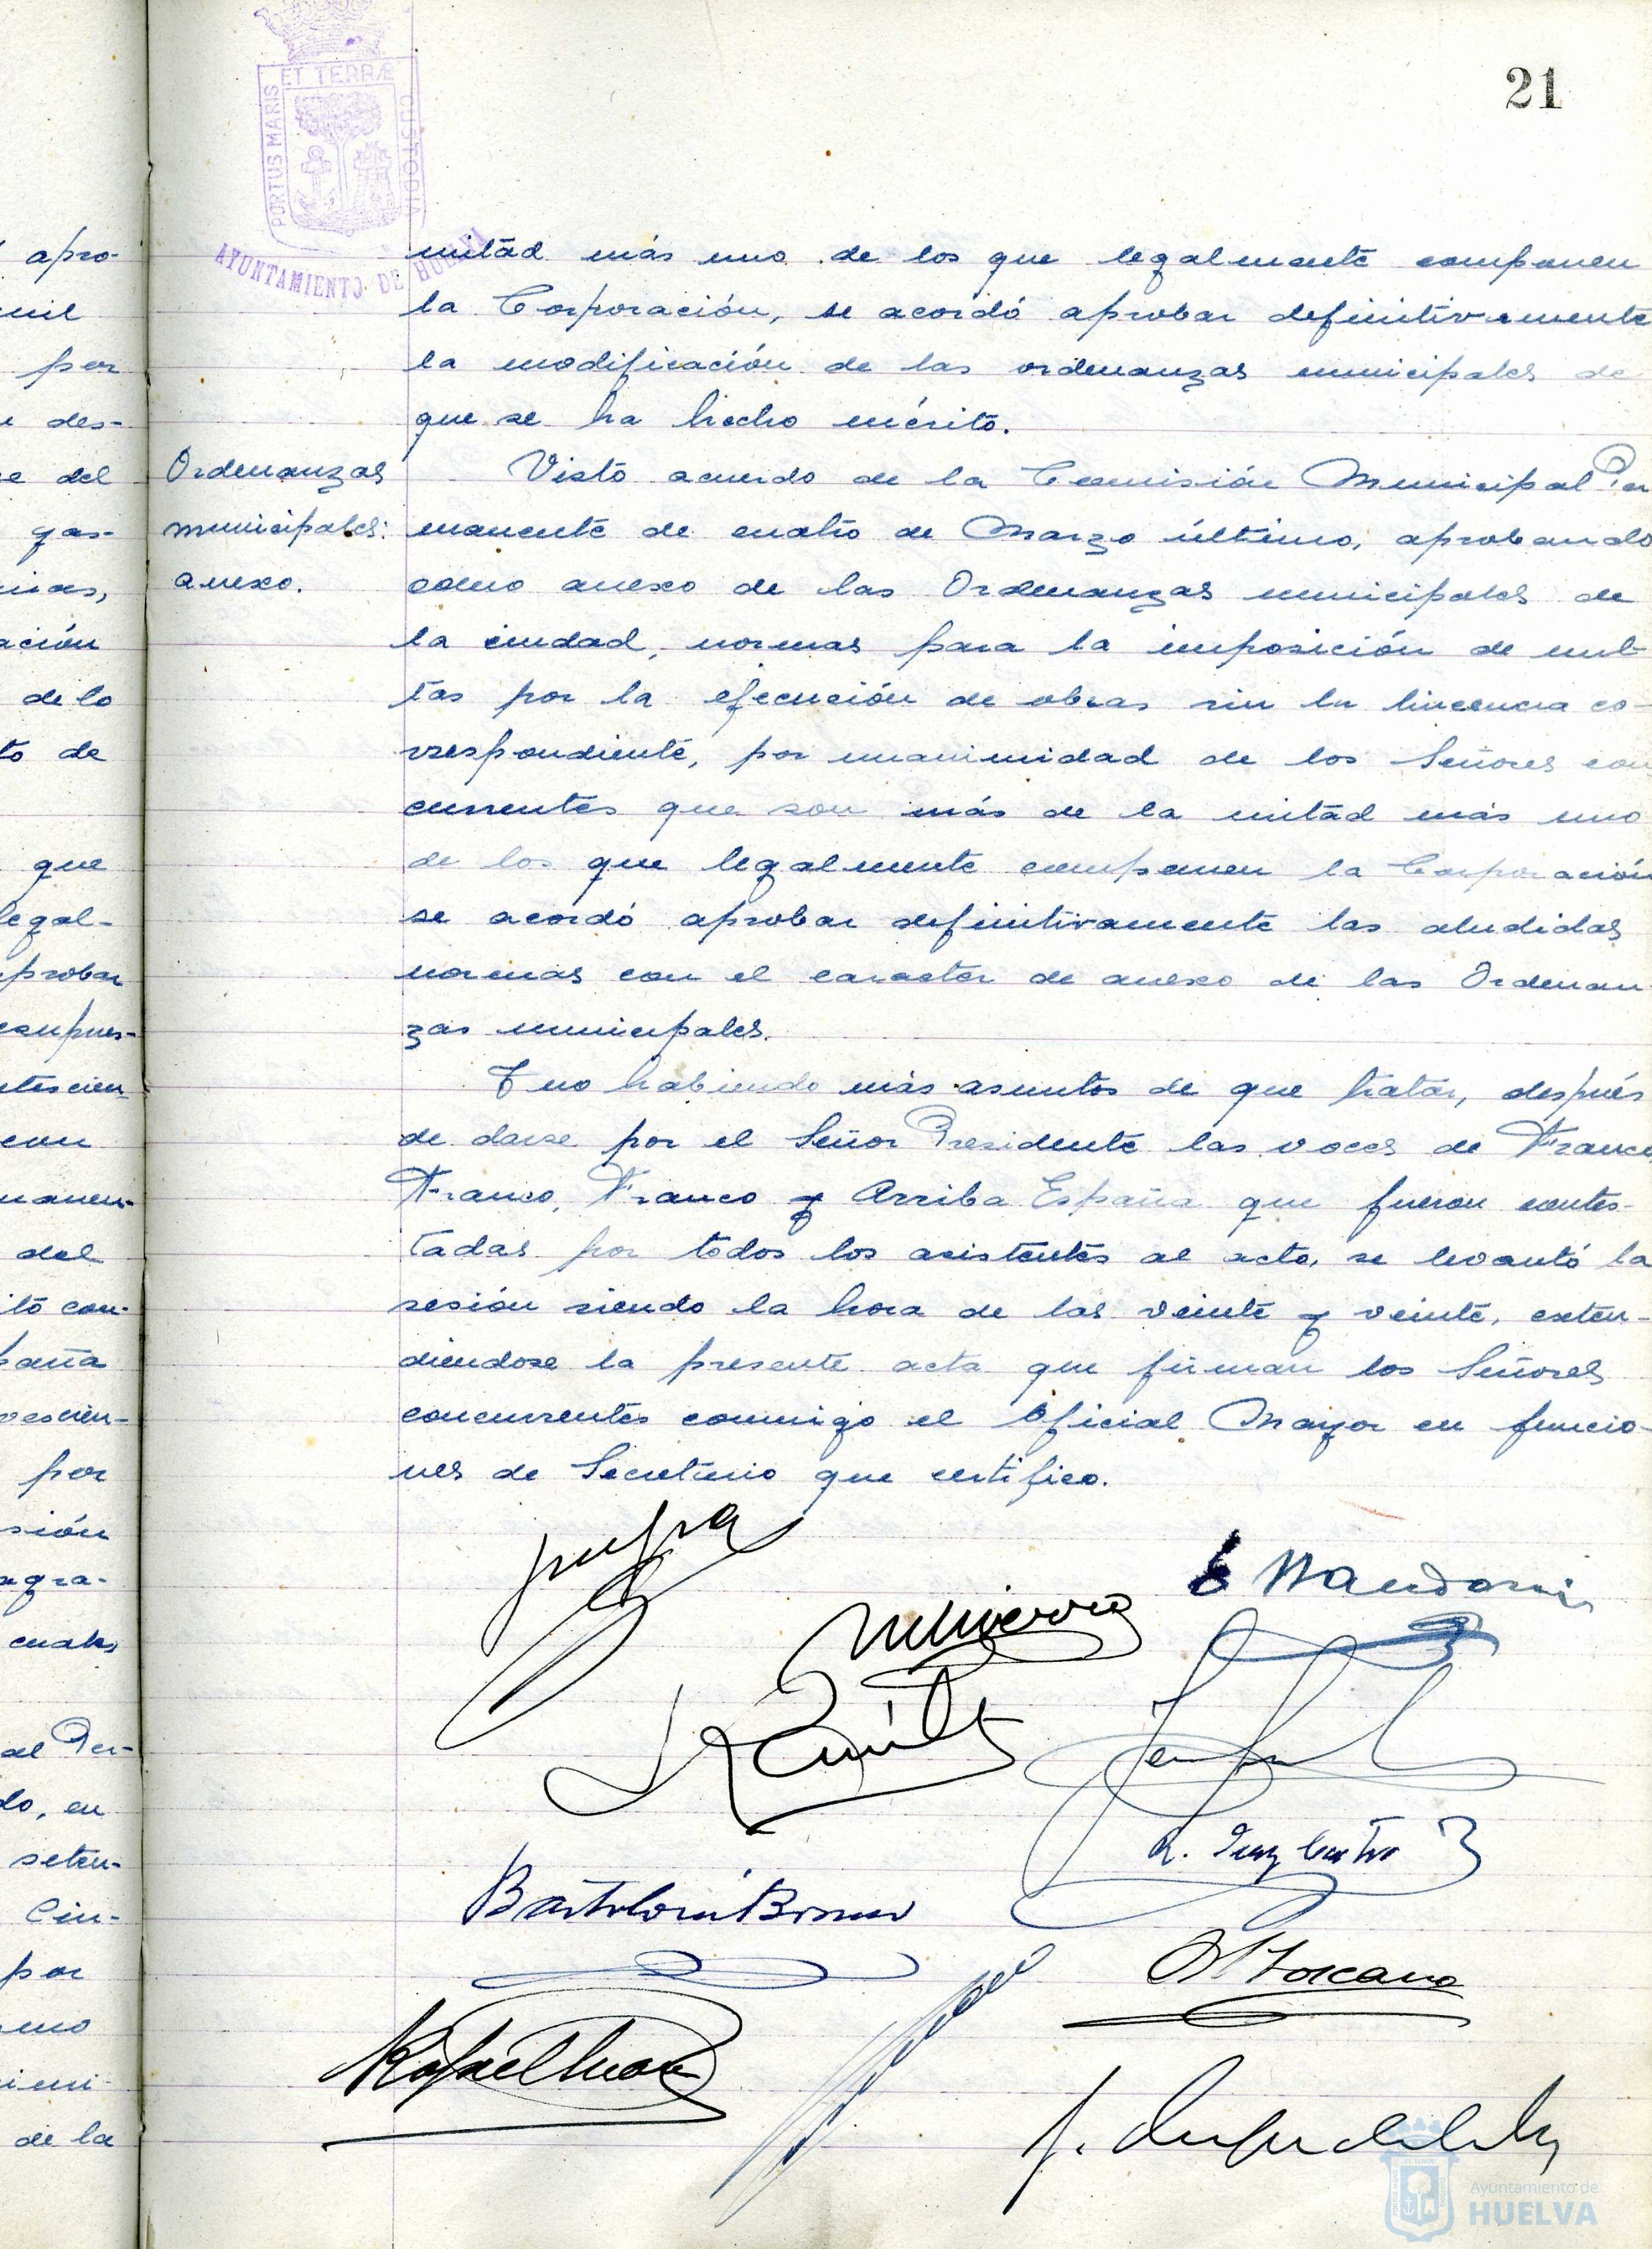 21
ET TERRÆ
PORTUS MARIS
CUSTODIA
AYUNTAMIENTO DE HUELVA
mitad más uno de los que legalmente componen
la Corporación, se acordó aprobar definitivamente
la modificación de las ordenanzas municipales de
que se ha hecho mérito.
Ordenanzas
municipales:
anexo.
Visto acuerdo de la Comisión Municipal Per
manente de cuatro de Marzo último, aprobando
como anexo de las Ordenanzas municipales de
la ciudad, normas para la imposición de mul-
tas por la ejecución de obras sin la lincencia co-
rrespondiente, por unanimidad de los Señores con
currentes que son más de la mitad más uno
de los que legalmente componen la Corporación
se acordó aprobar definitivamente las aludidas
normas con el caracter de anexo de las Ordenan
zas municipales.
Y no habiendo más asuntos de que tratar, después
de darse por el Señor Presidente las voces de Franco
Franco, Franco y Arriba España que fueron contes-
tadas por todos los asistentes al acto, se levantó la
sesión siendo la hora de las veinte y veinte, exten-
diendose la presente acta que firman los Señores
concurrentes conmigo el Oficial Mayor en funcio-
nes de Secretario que certifico.
Toscano
Rafael
apro-
mil
por
des-
del
gas-
ación
de lo
to de
que
legal-
probar
con
del
por
sión
al Per-
do, en
seten-
Cin-
por
uno
de la
Ayuntamiento de
HUELVA